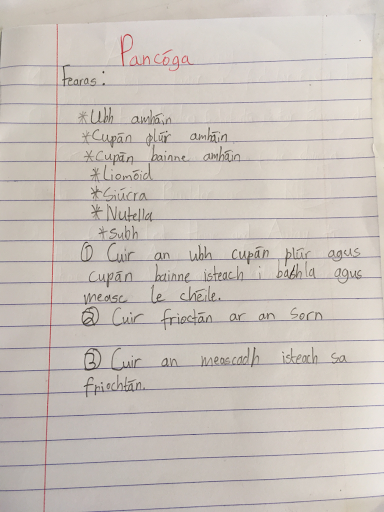 Pancóga
Fearas:
*Ubh amháin
*Cupán plúr amháin
*Cupán bainne amháin
*Líomóid
*Siúcra
*Nutella
*Subh
① Cuir an ubh cupán plúr agus
cupán bainne isteach i babhla agus
measc le chéile.
② Cuir frioctán ar an sorn
③ Cuir an meascadh isteach sa
friochtán.